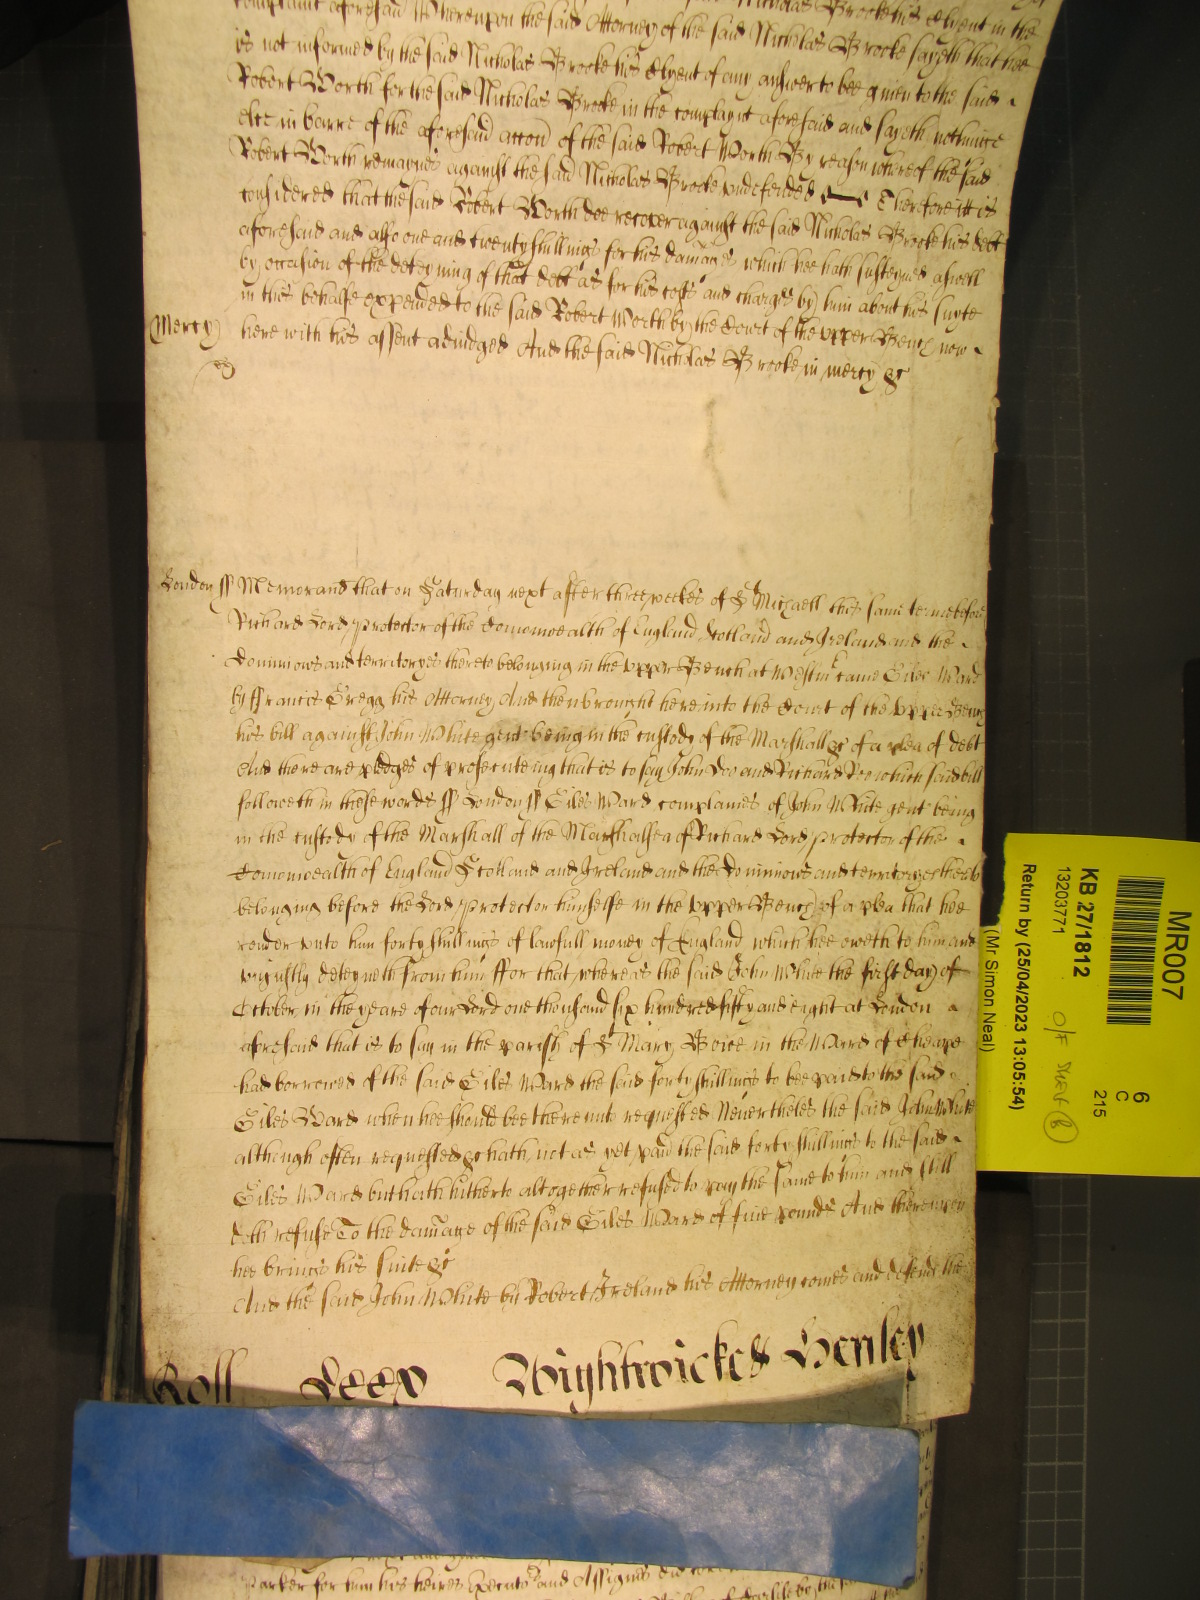 complaint aforesaid Whereupon the said Attorney of the said Nicholas Brooke his Clyent in the
is not informed by the said Nicholas Brooke his Clyent of any answer to bee given to the said
Robert Worth for the said Nicholas Brooke in the complaynt aforesaid and sayeth nothinge
else in barre of the aforesaid accon of the said Robert Worth By reason whereof the said
Robert Worth remaynes against the said Nicholas Brooke undefended Therefore itt is
considered that the said Robert Worth doe recover against the said Nicholas Brooke his debt
aforesaid and also one and twenty shillings for his damages which hee hath susteyned aswell
by occasion of the deteyning of that debt as for his costs and charges by him about his suyte
in this behalfe expended to the said Robert Worth by the Court of the upper Bench now
Mercy
here with his assent adiudged And the said Nicholas Brooke in mercy &c
London ss Memorand that on Saturday next after three weekes of St Michaell this same terme before
Richard Lord protector of the Comonwealth of England Scotland and Ireland and the
Dominions and territoryes thereto belonging in the upper Bench at Westmr came Giles Ward
by Francis Gregg his Attorney And then brought here into the Court of the upper Bench
his bill against John White gent being in the custody of the Marshall &c of a plea of debt
And there are pledges of prosecuteing that is to say John Doo and Richard Roo which said bill
followeth in these words ss London ss Giles Ward complaines of John White gent being
in the custody of the Marshall of the Marshalsea of Richard Lord protector of the
Comonwealth of England Scotland and Ireland and the Dominions and territoryes thereto
belonging before the Lord protector himselfe in the upper Bench of a plea that hee
render unto him forty shillings of lawfull money of England which hee oweth to him and
uniustly deteyneth from him ffor that whereas the said John White the first day of
October in the yeare of our Lord one thousand six hundred fifty and eight at London
aforesaid that is to say in the parish of St Mary Bowe in the Ward of Cheape
had borrowed of the said Giles Ward the said forty shillings to bee paid to the said
Giles Ward when hee should bee thereunto requested Neverthelesse the said John White
although often requested &c hath not as yet paid the said forty shillings to the said
Giles Ward but hath hitherto altogether refused to pay the same to him and still
doth refuse To the damage of the said Giles Ward of five pounds And thereupon
hee brings his suite &c
And the said John White by Robert Ireland his Attorney comes and defends the
Roll Wightwicke Henley
Parker for him his heires Executors and Assignes did
MR007
6
C
215
KB 27/1812
13203771
O/F
Return by (25/04/2023 13:05:54)
(Mr Simon Neal)